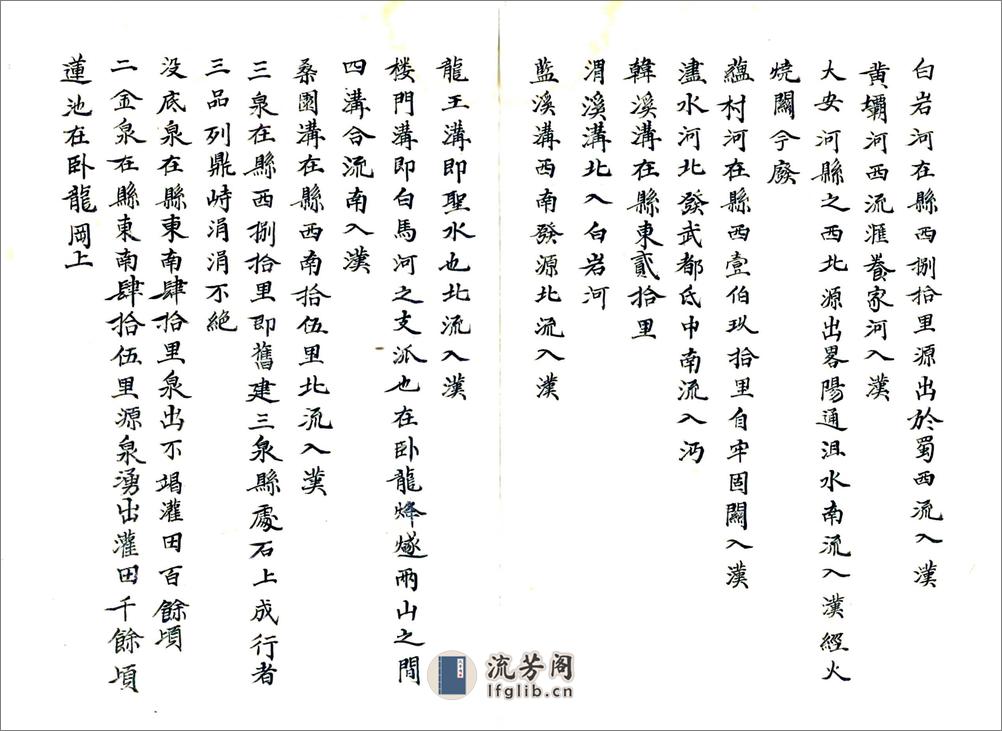 白岩河在縣西捌拾里源出於蜀西流入漢
黄壩河西流滙養家河入漢
大安河縣之西北源出畧陽通沮水南流入漢經火
燒關今廢
蘊村河在縣西壹伯玖拾里自牢固關入漢
濜水河北發武都氐中南流入沔
韓溪溝在縣東貳拾里
渭溪溝北入白岩河
藍溪溝西南發源北流入漢
龍王溝即聖水也北流入漢
楼門溝即白馬河之支派也在卧龍烽燧兩山之間
四溝合流南入漢
桑園溝在縣西南拾伍里北流入漢
三泉在縣西捌拾里即舊建三泉縣處石上成行者
三品列鼎峙涓涓不絶
没底泉在縣東南肆拾里泉出不竭灌田百餘頃
二金泉在縣東南肆拾伍里源泉湧出灌田千餘頃
蓮池在卧龍岡上
流芳阁
lfglib.cn